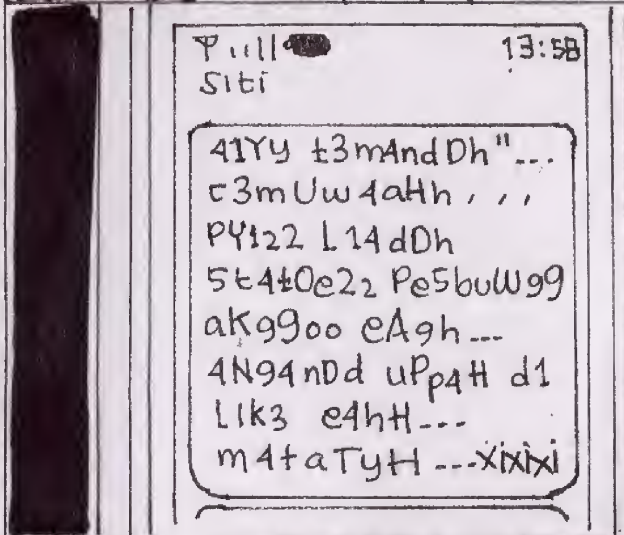 13:58
Siti
41YY t3mAndDh"...
t3mUw4aHh , , ,
PY122 L14dDh
5t4tOe22 Pe5buWgg
aKggoo eAgh...
4N94nDd uPp4H d1
L1k3 e4hH...
m4taTyH ...xixixi